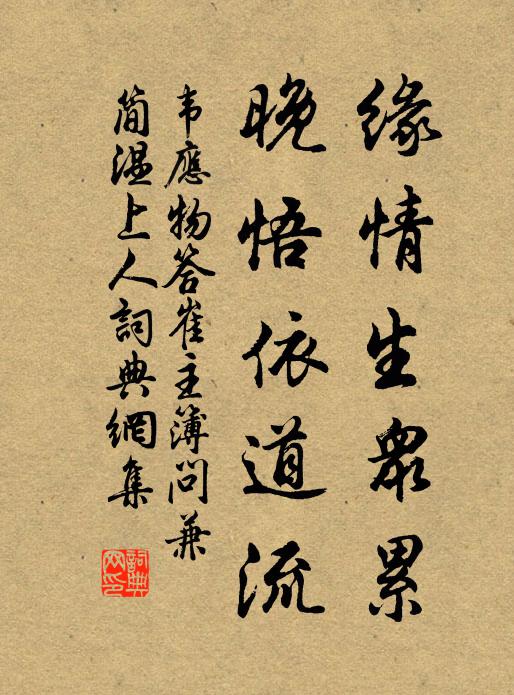 缘情生眾累
晚悟依道流
韦應物答崔主簿问兼
简温上人詞典網集
詞典网印